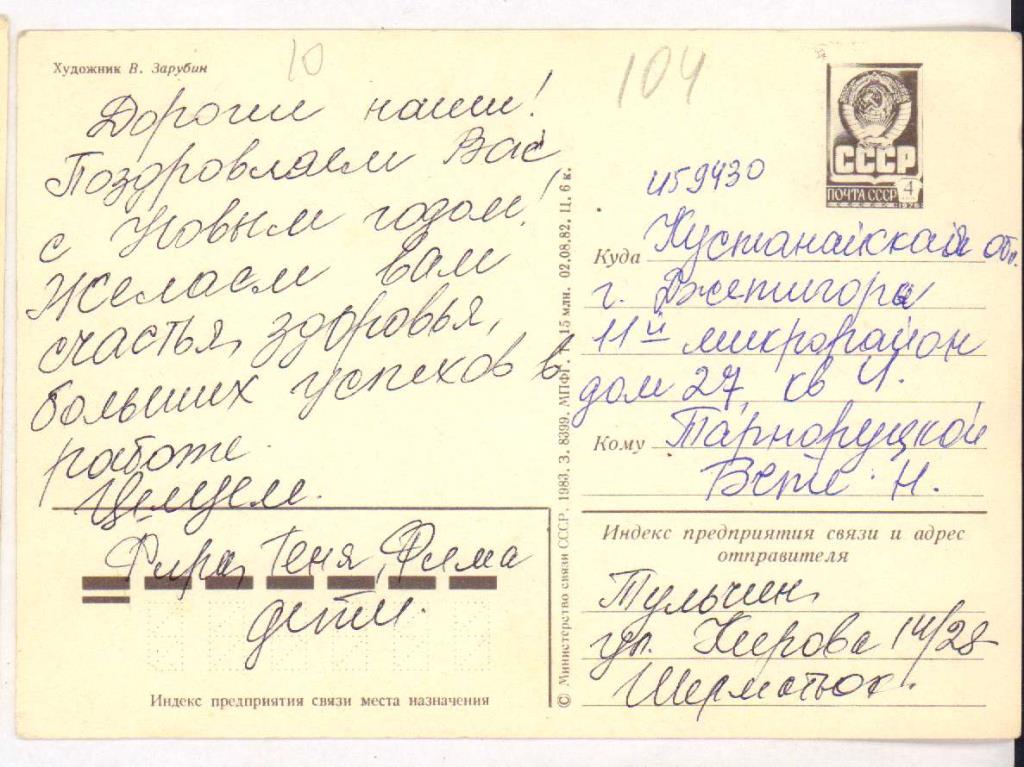 Художник В. Зарубин
10
104
Дорогие наши!
Поздровляем Вас
с Новым годом!
Желаем вам
счастья, здоровья,
больших успехов в
работе.
Целуем.
Фира, Геня, Фима
дети.
Индекс предприятия связи места назначения
© Министерство связи СССР. 1983. З. 8399. МПФГ. Т. 15 млн. 02.08.82. Ц. 6 к.
СССР
ПОЧТА СССР 4
1976
459430
Куда Кустанайская обл.
г. Джетигора
11й микрорайон
дом 27, кв 4.
Кому Тарноруцкой
Бете. Н.
Индекс предприятия связи и адрес
отправителя
Тульчин,
ул. Кирова 14/28